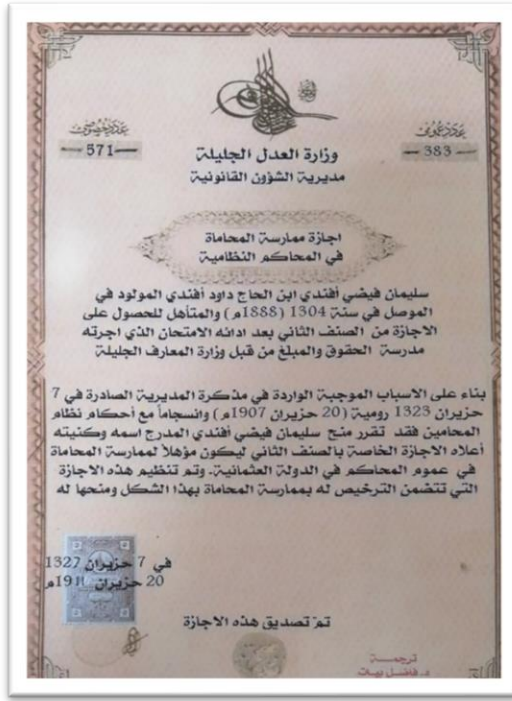 عدد عمومي
383
عدد خصوصي
571
وزارة العدل الجليلة
مديرية الشؤون القانونية
اجازة ممارسة المحاماة
في المحاكم النظامية
سليمان فيضي أفندي ابن الحاج داود أفندي المولود في
الموصل في سنة 1304 (1888م) والمتأهل للحصول على
الاجازة من الصنف الثاني بعد ادائه الامتحان الذي اجرته
مدرسة الحقوق والمبلغ من قبل وزارة المعارف الجليلة
بناء على الاسباب الموجبة الواردة في مذكرة المديرية الصادرة في 7
حزيران 1323 رومية (20 حزيران 1907م) وانسجاماً مع أحكام نظام
المحامين فقد تقرر منح سليمان فيضي أفندي المدرج اسمه وكنيته
أعلاه الاجازة الخاصة بالصنف الثاني ليكون مؤهلاً لممارسة المحاماة
في عموم المحاكم في الدولة العثمانية. وتم تنظيم هذه الاجازة
التي تتضمن الترخيص له بممارسة المحاماة بهذا الشكل ومنحها له
في 7 حزيران 1327
20 حزيران
تم تصديق هذه الاجازة
ترجمة
د. فاضل بيات